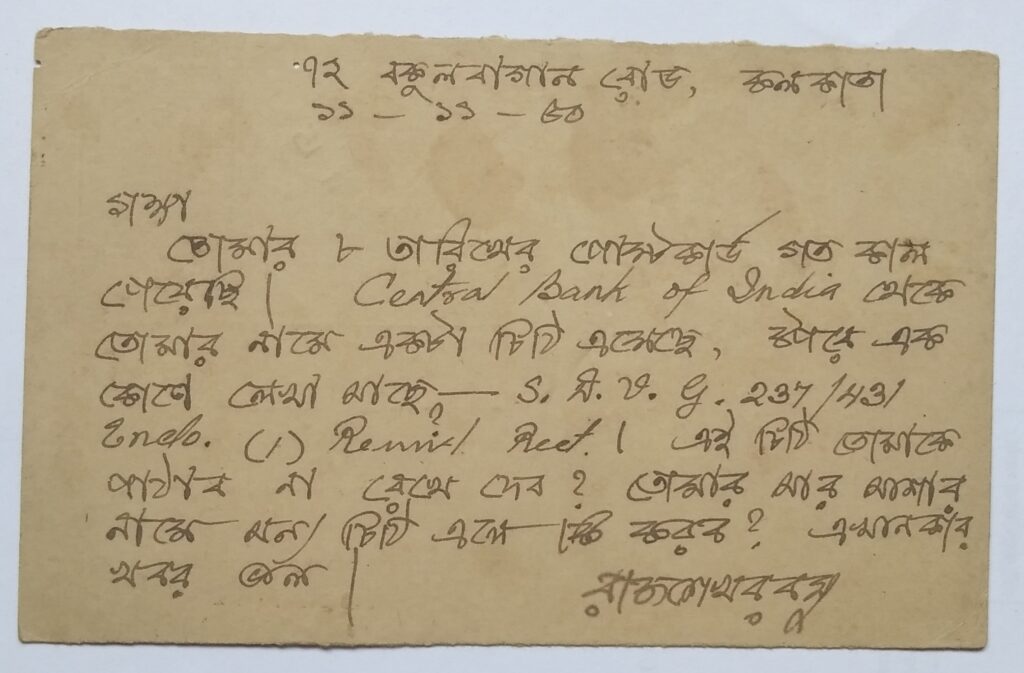 ৭২ বকুলবাগান রোড, কলকাতা
১১ – ১১ – ৫০
তোমার ৮ তারিখের পোস্টকার্ড গত কাল
পেয়েছি। Central Bank of India থেকে
তোমার নামে একটা চিঠি এসেছে, উপরে এক
কোণে লেখা আছে — S. D. V. G. 237/431
Enclo. (1) এই চিঠি তোমাকে
পাঠাব না রেখে দেব? তোমার আর
নামে অন্য চিঠি এলে কি করব? এখানকার
খবর ভাল।
রাজশেখর বসু